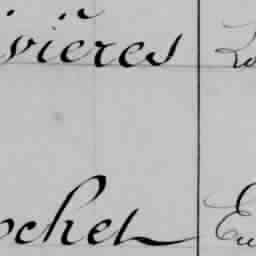 ivières
ochet